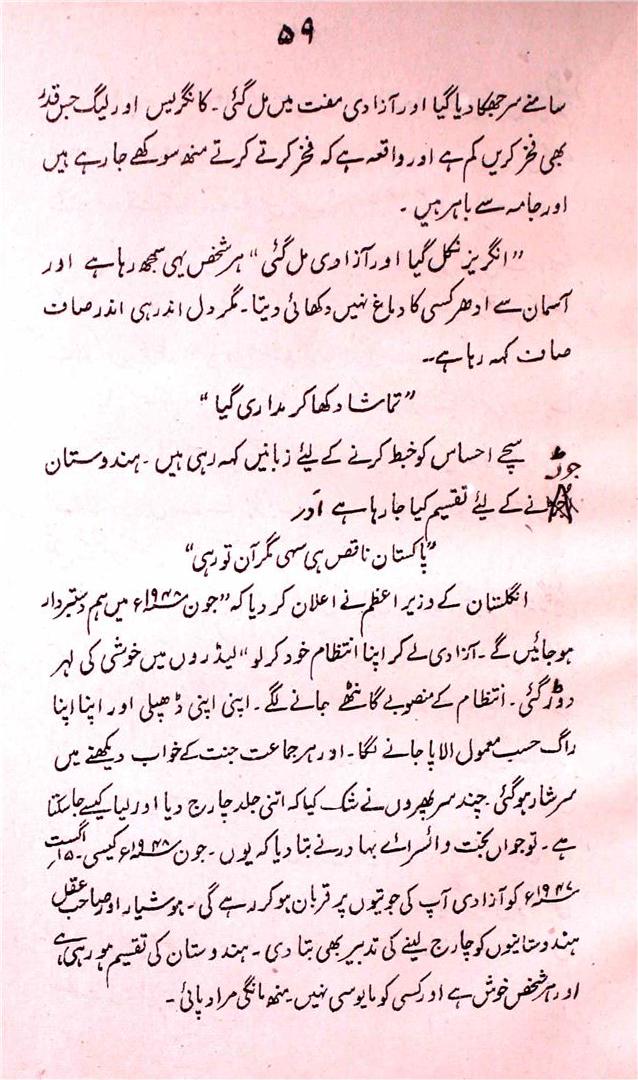 ۵۹
سامنے سر جھکا دیا گیا اور آزادی مفت میں مل گئی۔ کانگریس اور لیگ جس قدر
بھی فخر کریں کم ہے اور واقعہ ہے کہ فخر کرتے کرتے منھ سوکھے جا رہے ہیں
اور جامہ سے باہر ہیں۔
”انگریز نکل گیا اور آزادی مل گئی“ ہر شخص یہی سمجھ رہا ہے اور
آسمان سے ادھر کسی کا دماغ نہیں دکھائی دیتا۔ مگر دل اندر ہی اندر صاف
صاف کہہ رہا ہے۔
”تماشا دکھا کر مداری گیا“
سچے احساس کو خبط کرنے کے لیئے زبانیں کہہ رہی ہیں۔ ہندوستان
جوڑنے کے لیئے تقسیم کیا جا رہا ہے اور
”پاکستان ناقص ہی سہی مگر آن تو رہی“
انگلستان کے وزیر اعظم نے اعلان کر دیا کہ ”جون ۱۹۴۸ء میں ہم دستبردار
ہو جائیں گے۔ آزادی لے کر اپنا انتظام خود کر لو“ لیڈروں میں خوشی کی لہر
دوڑ گئی۔ انتظام کے منصوبے گانٹھے جانے لگے۔ اپنی اپنی ڈھپلی اور اپنا اپنا
راگ حسب معمول الاپا جانے لگا۔ اور ہر جماعت جنت کے خواب دیکھنے میں
سرشار ہو گئی۔ چند سر پھیروں نے شک کیا کہ اتنی جلد چارج دیا اور لیا کیسے جا سکتا
ہے۔ تو جواں بخت وائسرائے بہادر نے بتا دیا کہ یوں۔ جون ۱۹۴۸ء کیسی۔ ۱۵ اگست
۱۹۴۷ء کو آزادی آپ کی جوتیوں پر قربان ہو کر رہے گی۔ ہوشیار اور صاحب عقل
ہندوستانیوں کو چارج لینے کی تدبیر بھی بتا دی۔ ہندوستان کی تقسیم ہو رہی ہے
اور ہر شخص خوش ہے اور کسی کو مایوسی نہیں۔ منھ مانگی مراد پائی۔